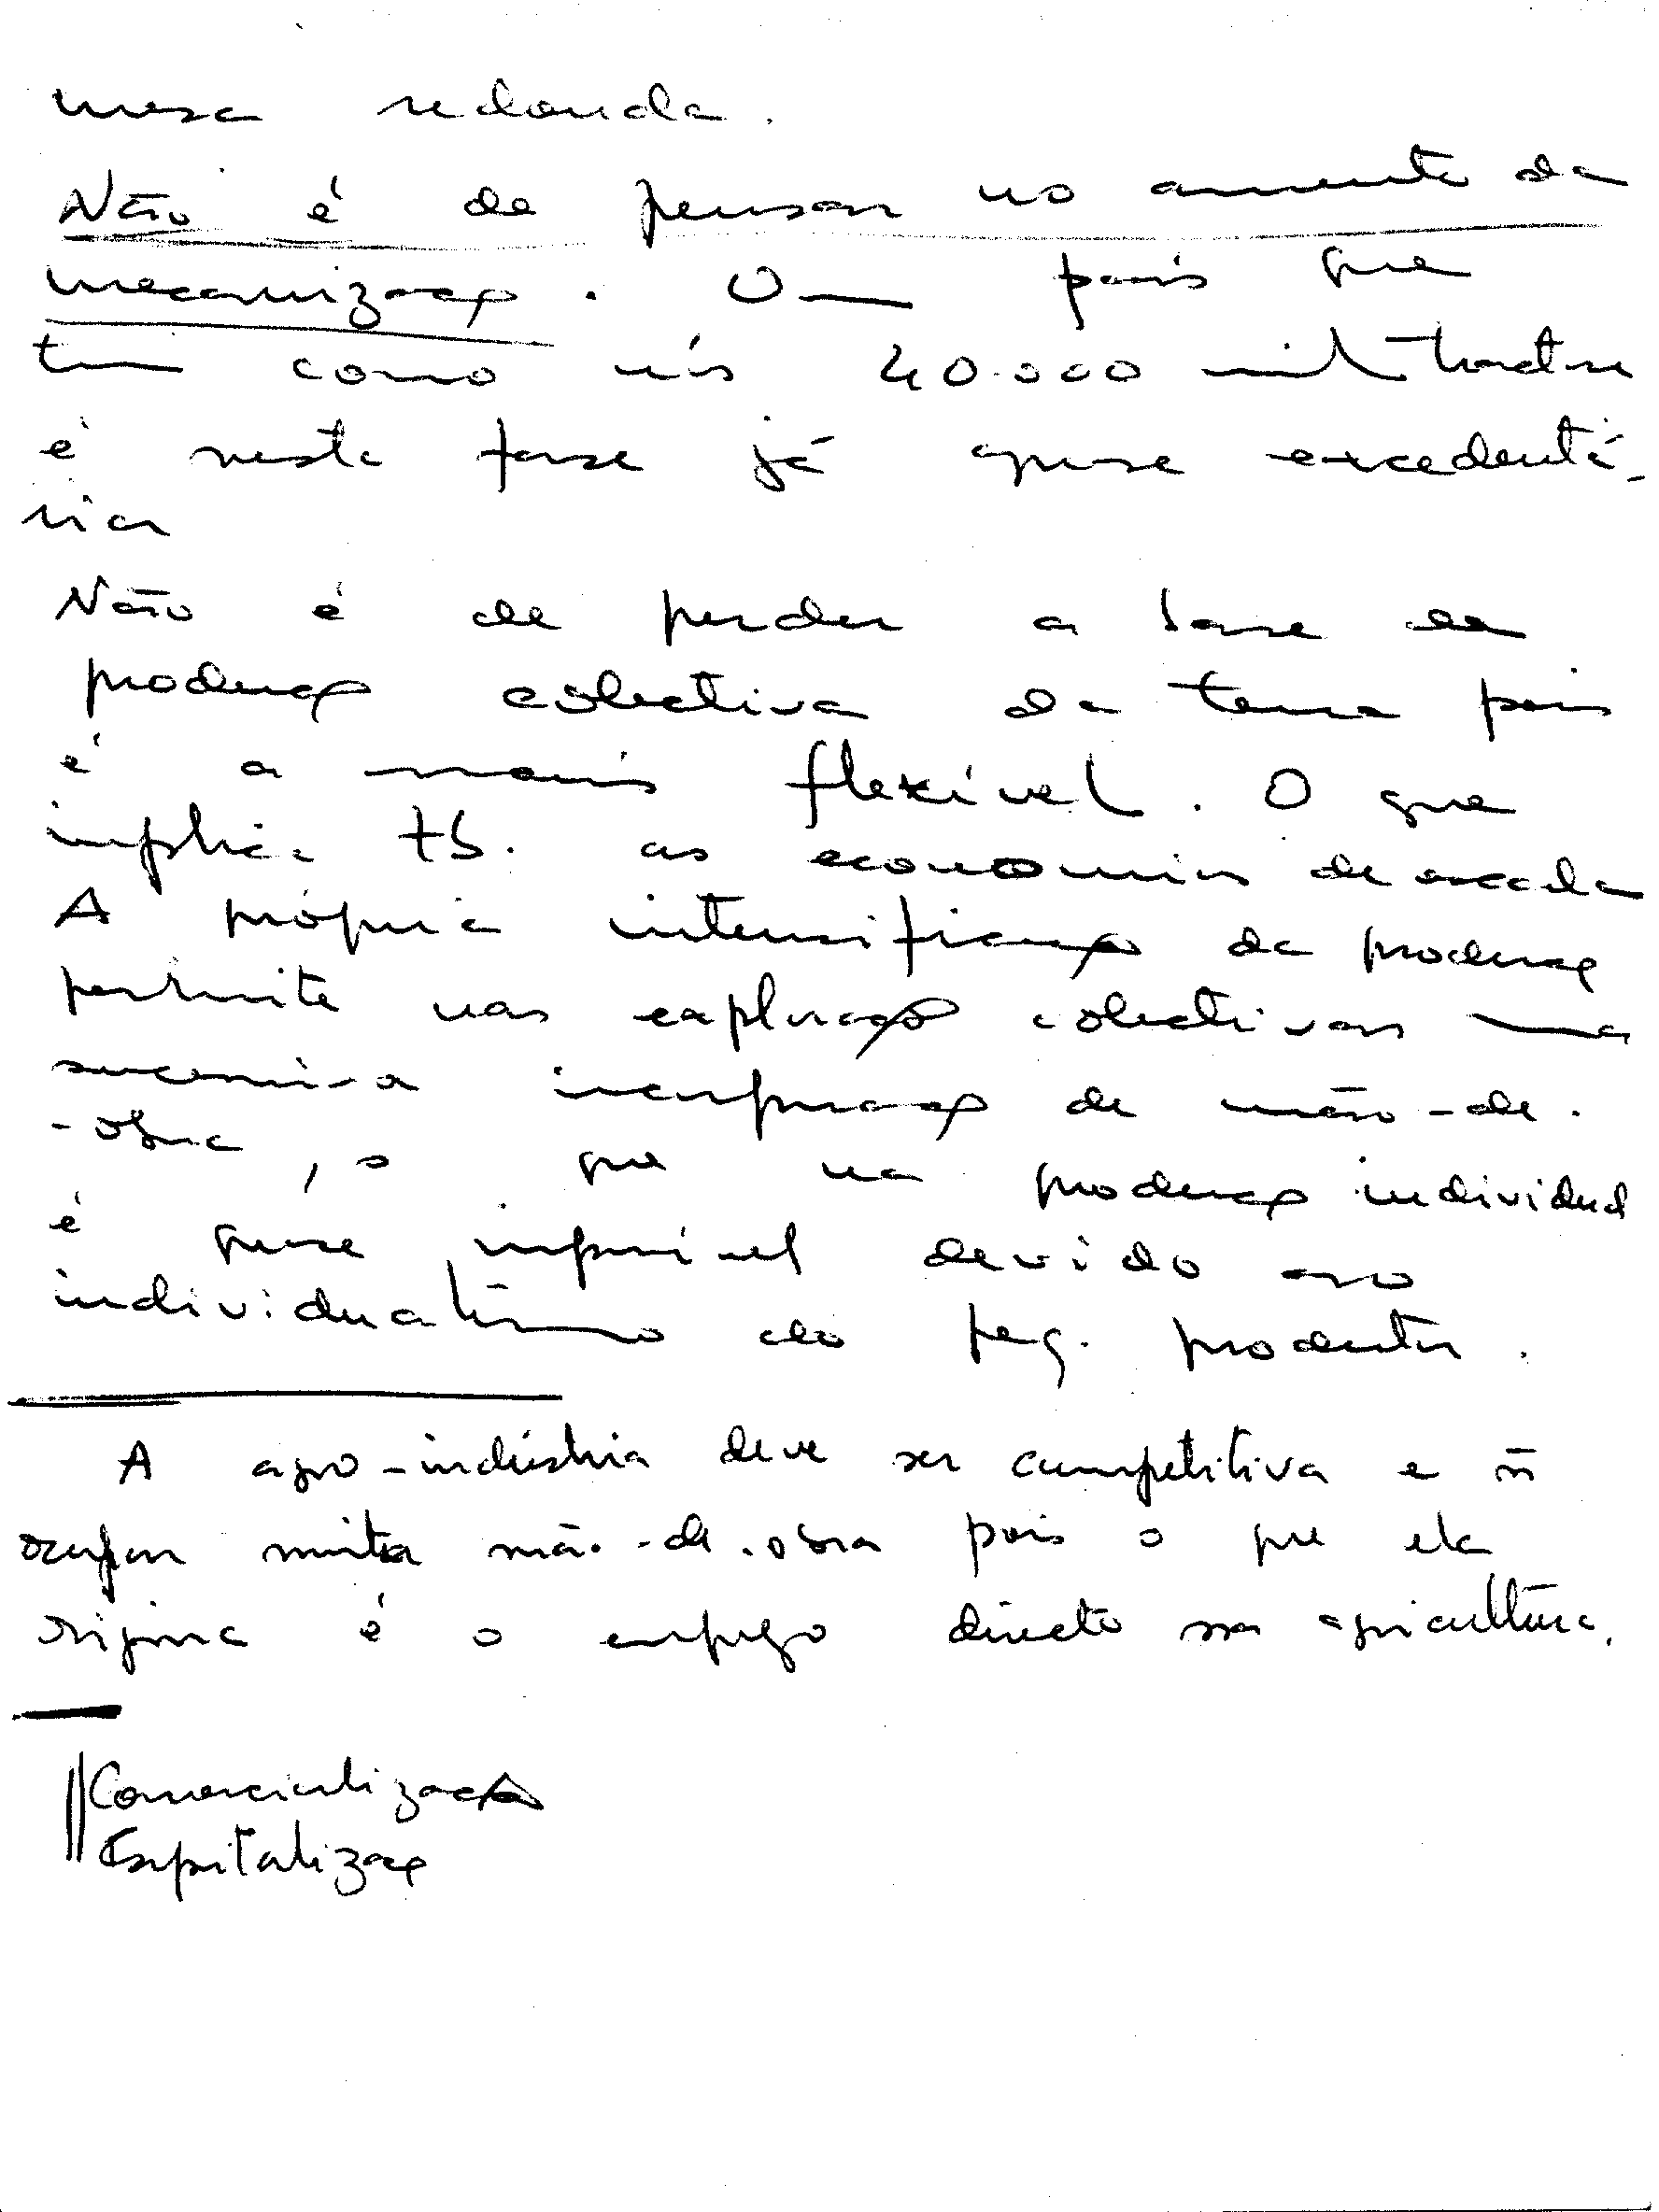 mesa redonda.
Não é de pensar no aumento da
mecanização. Um país que
tem como nós 40.000 mil tractores
é nesta fase já quase excedentá-
rio
Não é de perder a base de
produção colectiva da terra pois
é a mais flexível. O que
implica tb. as economias de escala
A própria intensificação da produção
permite nas explorações colectivas uma
sucessiva incorporação de mão-de-
-obra, o que na produção individual
é quase impossível devido ao
individualismo do peq. produtor.
A agro-indústria deve ser competitiva e ñ
ocupar muita mão-de-obra pois o que ela
origina é o emprego directo na agricultura.
Comercialização
Capitalização